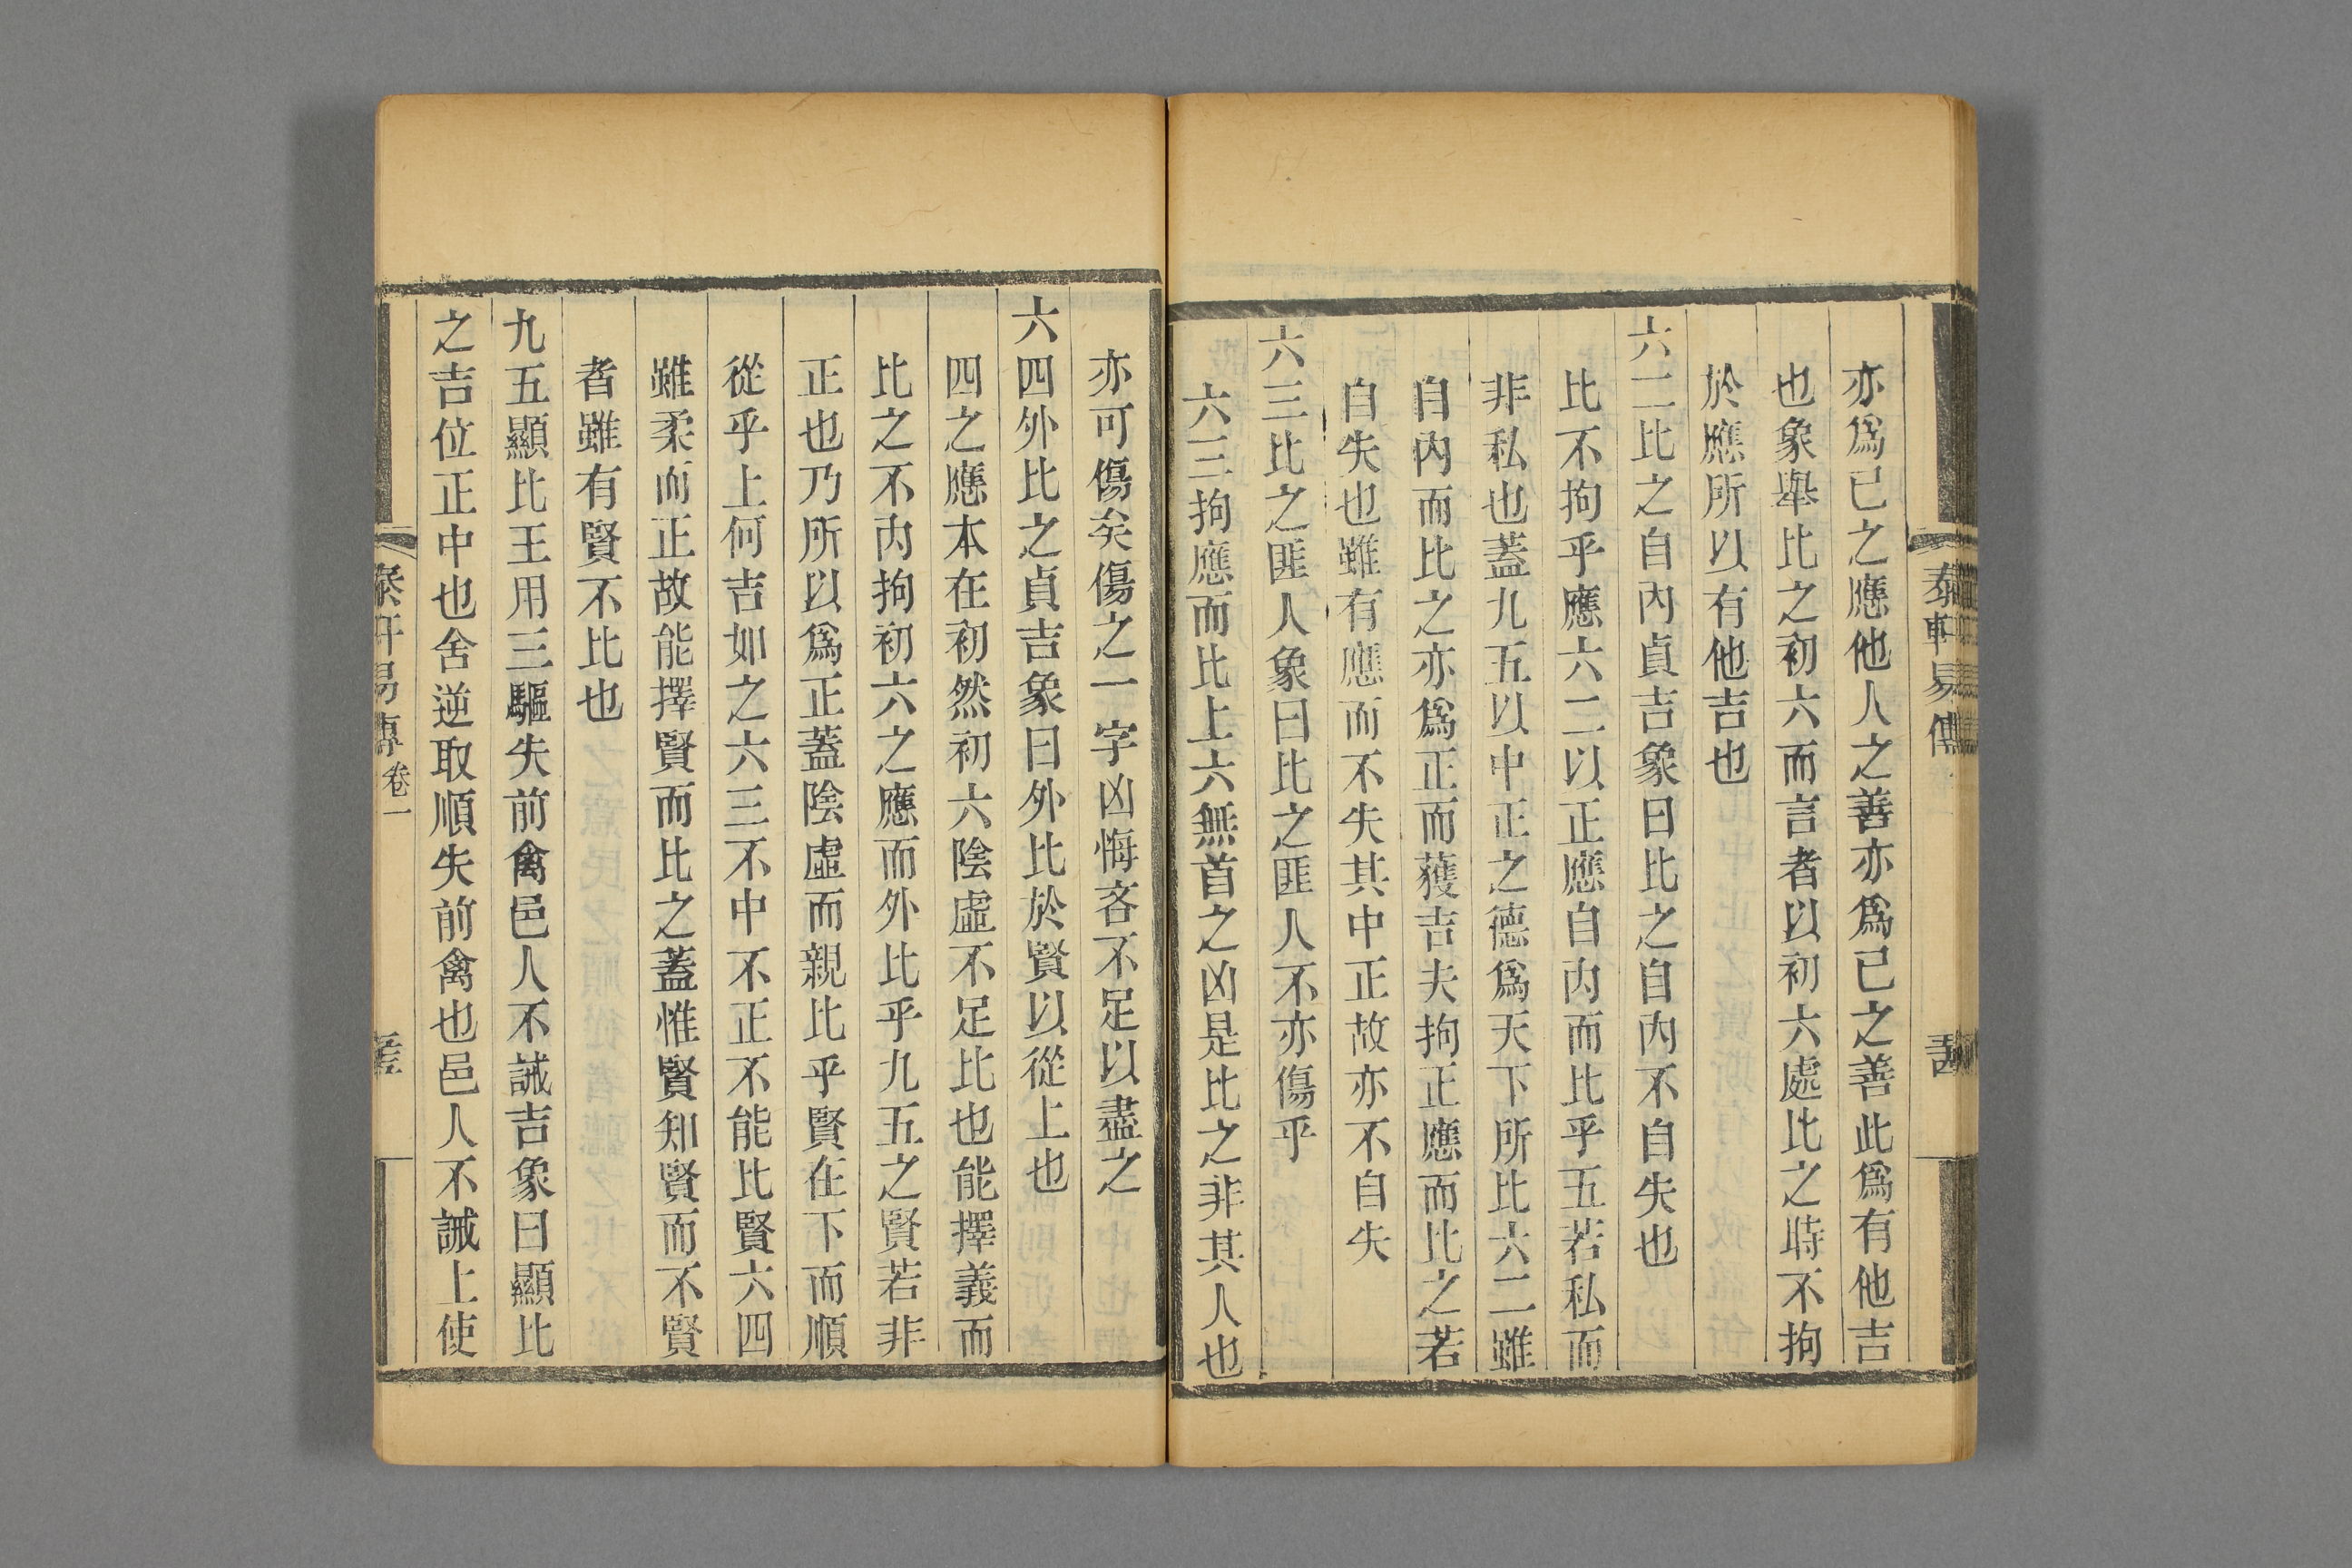 泰軒易傳
亦爲已之應他人之善亦爲已之善此爲有他吉
也象舉比之初六而言者以初六處比之時不拘
於應所以有他吉也
六二比之自內貞吉象曰比之自內不自失也
比不拘乎應六二以正應自內而比乎五若私而
非私也蓋九五以中正之德爲天下所比六二雖
自內而比之亦爲正而獲吉夫拘正應而比之若
自失也雖有應而不失其中正故亦不自失
六三比之匪人象曰比之匪人不亦傷乎
六三拘應而比上六無首之凶是比之非其人也
亦可傷矣傷之一字凶悔吝不足以盡之
六四外比之貞吉象曰外比於賢以從上也
四之應本在初然初六陰虛不足比也能擇義而
比之不內拘初六之應而外比乎九五之賢若非
正也乃所以爲正蓋陰虛而親比乎賢在下而順
從乎上何吉如之六三不中不正不能比賢六四
雖柔而正故能擇賢而比之蓋惟賢知賢而不賢
者雖有賢不比也
九五顯比王用三驅失前禽邑人不誡吉象曰顯比
之吉位正中也舍逆取順失前禽也邑人不誡上使
泰軒易傳 卷一